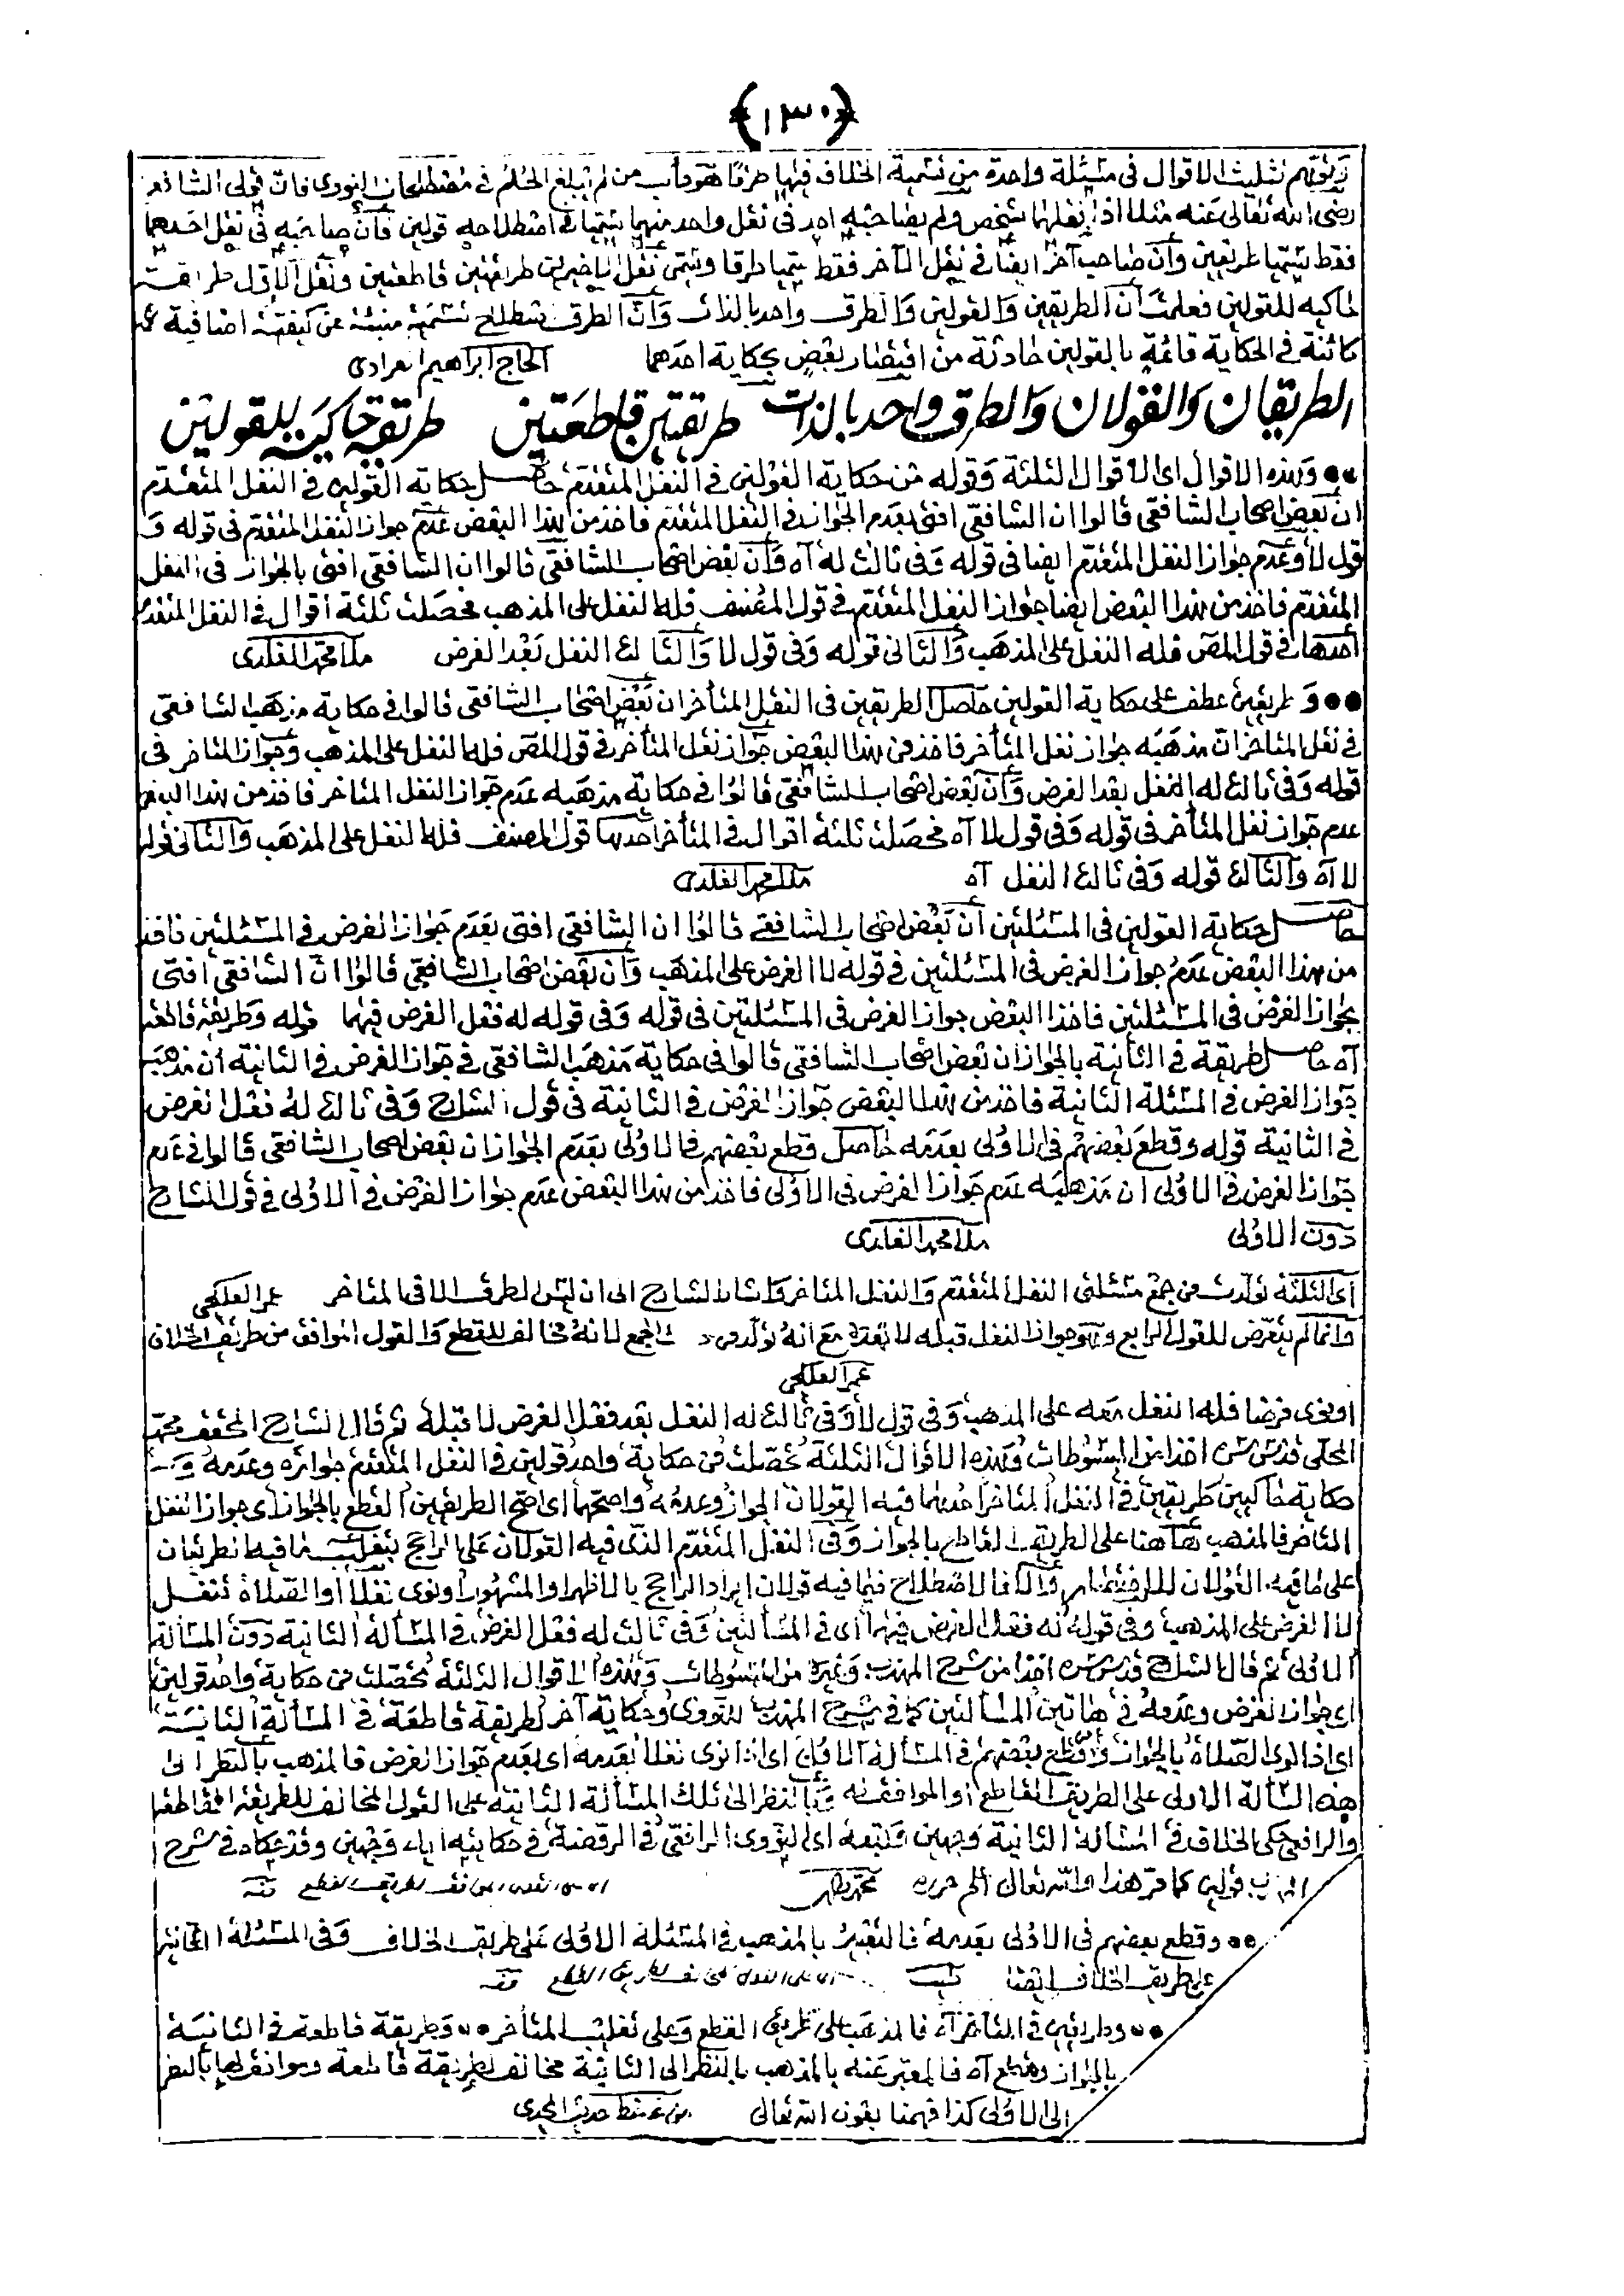 ﴿١٣٠﴾
تثليث الاقوال فى مسئلة واحدة من تسمية الخلاف فيها طرقا من لم يبلغ الحلم فى النووى فان قولى الشافعى
رضى الله تعالى عنه مثلا اذا نقلهما شخص ولم يصاحبه احد فى نقل واحد منهما يسميا فى اصطلاحه قولين فان صاحبه فى نقل احدهما
فقط يسميا طريقين وان صاحب آخر ايضا فى نقل الآخر فقط يسميا طرقا ويسمى نقل الاخيرين طريقتين قاطعتين ونقل الاول طريقة
حاكيه للقولين فعلمت ان الطريقين والقولين والطرق واحد بالذات وان الطرق تسمية منبئة عن كيفية اضافية
كائنة فى الحكاية قائمة بالقولين حادثة من اقتصار بعض بحكاية احدهما الحاج ابراهيم
الطريقان والقولان والطرق واحد بالذات طريقتين قاطعتين طريقة حاكية للقولين
وهذه الاقوال اى الاقوال الثلثة وقوله من حكاية القولين فى النفل المتقدم حاصل حكاية القولين فى النفل المتقدم
ان بعض اصحاب الشافعى قالوا ان الشافعى افتى بعدم الجواز فى النفل المتقدم فاخذ من هذا البعض عدم جواز النفل المتقدم فى قوله و
قول لا وعدم جواز النفل المتقدم ايضا فى قوله وفى ثالث له آه وان بعض اصحاب الشافعى قالوا ان الشافعى افتى بالجواز فى النفل
المتقدم فاخذ من هذا البعض ايضا جواز النفل المتقدم فى قول المصنف فله النفل على المذهب فحصلت ثلثة اقوال فى النفل المتقدم
احدها فى قول المص فله النفل على المذهب والثانى قوله وفى قول لا والثالث النفل بعد الفرض ملا محمد
و طريقين عطف على حكاية القولين حاصل الطريقين فى النفل المتأخر ان بعض اصحاب الشافعى قالوا فى حكاية مذهب الشافعى
فى نفل المتاخر ان مذهبه جواز نفل المتأخر فاخذ من هذا البعض جواز نفل المتأخر فى قول المص فله النفل على المذهب وجواز المتاخر فى
قوله وفى ثالث له النفل بعد الفرض وان بعض اصحاب الشافعى قالوا فى حكاية مذهبه عدم جواز النفل المتاخر فاخذ من هذا البعض
عدم جواز نفل المتأخر فى قوله وفى قول لا آه فحصلت ثلثة اقوال فى المتأخر احدها قول المصنف فله النفل على المذهب والثانى قوله
لا آه والثالث قوله وفى ثالث النفل آه ملا محمد
حاصل حكاية القولين فى المسئلتين ان بعض اصحاب الشافعى قالوا ان الشافعى افتى بعدم جواز الفرض فى المسئلتين فاخذ
من هذا البعض عدم جواز الفرض فى المسئلتين فى قوله لا الفرض على المذهب وان بعض اصحاب الشافعى قالوا ان الشافعى افتى
بجواز الفرض فى المسئلتين فاخذ البعض جواز الفرض فى المسئلتين فى قوله وفى قوله له فعل الفرض فيهما قوله وطريقة
آه حاصل طريقة فى الثانية بالجواز ان بعض اصحاب الشافعى قالوا فى حكاية مذهب الشافعى فى جواز الفرض فى الثانية ان مذهبه
جواز الفرض فى المسئلة الثانية فاخذ من هذا البعض جواز الفرض فى الثانية فى قول الشارح وفى ثالث له فعل الفرض
فى الثانية قوله وقطع بعضهم فى الاولى بعدمه حاصل قطع بعضهم فى الاولى بعدم الجواز ان بعض اصحاب الشافعى قالوا فى عدم
جواز الفرض فى الاولى ان مذهبه عدم جواز الفرض فى الاولى فاخذ من هذا البعض عدم جواز الفرض فى الاولى فى قول الشارح
دون الاولى ملا محمد
اى الثلثة تولدت من جمع مسئلتى النفل المتقدم والنفل المتاخر واشار الشارح الى ان ليس الطرق الا فى المتاخر عمر
وانما لم يتعرض للقول الرابع وهو جواز النفل قبله لا بعده مع انه الجمع لانه مخالف للقطع والقول الموافق من طريق الخلاف
عمر
او نوى فرضا فله النفل معه على المذهب وفى قول لا وفى ثالث له النفل بعد فعل الفرض لا قبله ثم قال الشارح المحقق محمد
المحلى قدس سره اخذا من المبسوطات وهذه الاقوال الثلثة تحصلت من حكاية واحد قولين فى النفل المتقدم جوازه وعدمه و
حكاية حاكيين طريقين فى النفل المتاخر احدهما فيه القولان الجواز وعدمه واصحهما اى اصح الطريقين القطع بالجواز اى جواز النفل
المتاخر فالمذهب هاهنا على الطريق القاطع بالجواز وفى النفل المتقدم الذى فيه القولان على الراجح بتغليب ما فيه الطريقان
على ما فيه القولان للاختصار والا فالاصطلاح فيما فيه قولان ايراد الراجح بالاظهر او المشهور او نوى نفلا او الصلاة تنفل
لا الفرض على المذهب وفى قوله له فعل الفرض فيهما اى فى المسألتين وفى ثالث له فعل الفرض فى المسألة الثانية دون المسألة
الاولى ثم قال الشارح قدس سره اخذا من شرح المهذب وغيره من المبسوطات وهذه الاقوال الثلثة تحصلت من حكاية واحد قولين
اى جواز الفرض وعدمه فى هاتين المسألتين كما فى شرح المهذب للنووى وحكاية آخر طريقة قاطعة فى المسألة الثانية
اى اذا نوى الصلاة بالجواز وقطع بعضهم فى المسألة الاولى اى اذا نوى نفلا بعدمه اى بعدم جواز الفرض فالمذهب بالنظر الى
هذه المسألة الاولى على الطريق القاطع او الموافق له وبالنظر الى تلك المسألة الثانية على القول المخالف للطريقة القاطعة
والرافعى حكى الخلاف فى المسألة الثانية وجهين وتبعه اى النووى الرافعى فى الروضة فى حكايته اياه وجهين وقد حكاه فى شرح
المهذب قولين كما مر هذا والله تعالى اعلم حرره محمد
وقطع بعضهم فى الاولى بعدمه فالتعبير بالمذهب فى المسئلة الاولى على طريق الخلاف وفى المسئلة الثانية
على طريق الخلاف ايضا
وطريقين فى المتأخر آه فالمذهب على طريق القطع وعلى تغليب المتأخر وطريقة قاطعة فى الثانية
بالجواز وقطع آه فالمعتبر عنه بالمذهب بالنظر الى الثانية مخالف لطريقة قاطعة وموافق لها بالنظر
الى الاولى كذا فهمنا بعون الله تعالى